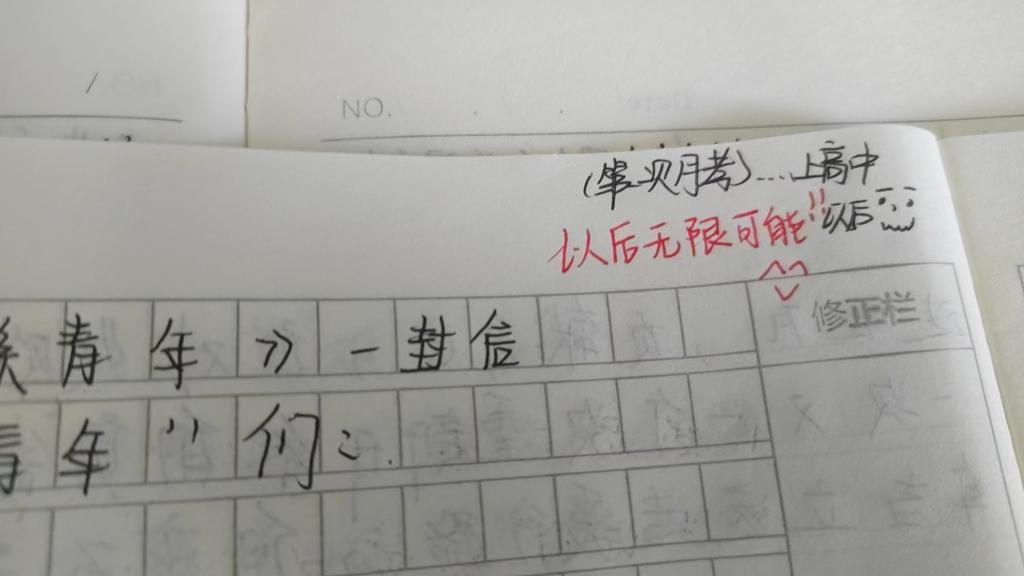 NO.
(第一次月考)....上高中
以后无限可能!!以后
青年》一封信
修正栏
青年"们：